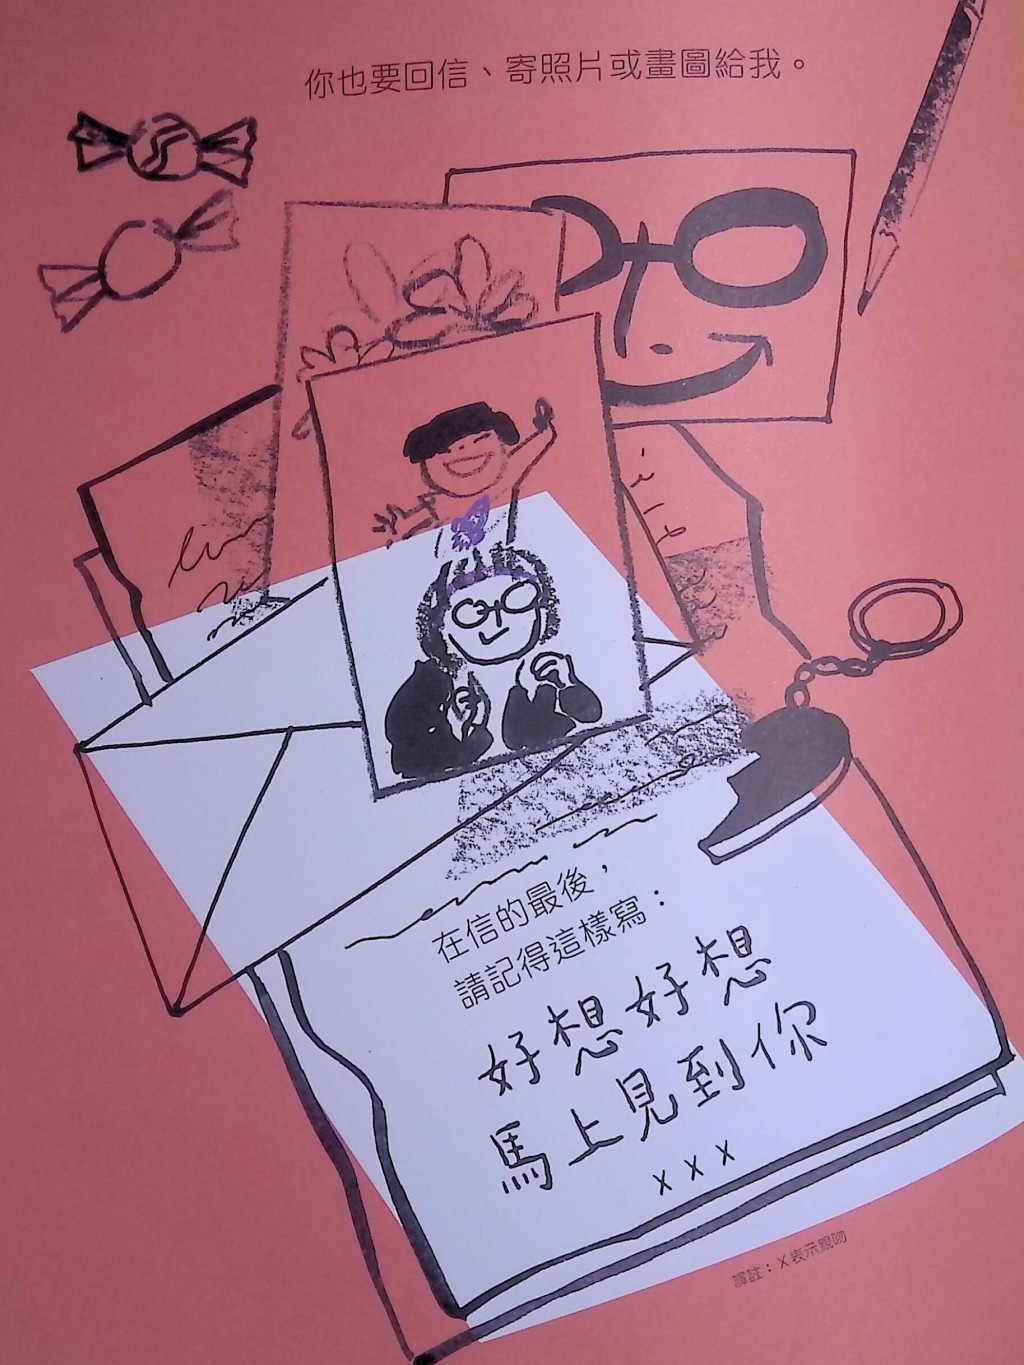 你也要回信、寄照片或畫圖給我。
在信的最後，
請記得這樣寫：
好想好想
馬上見到你
x x x
譯註：X表示親吻